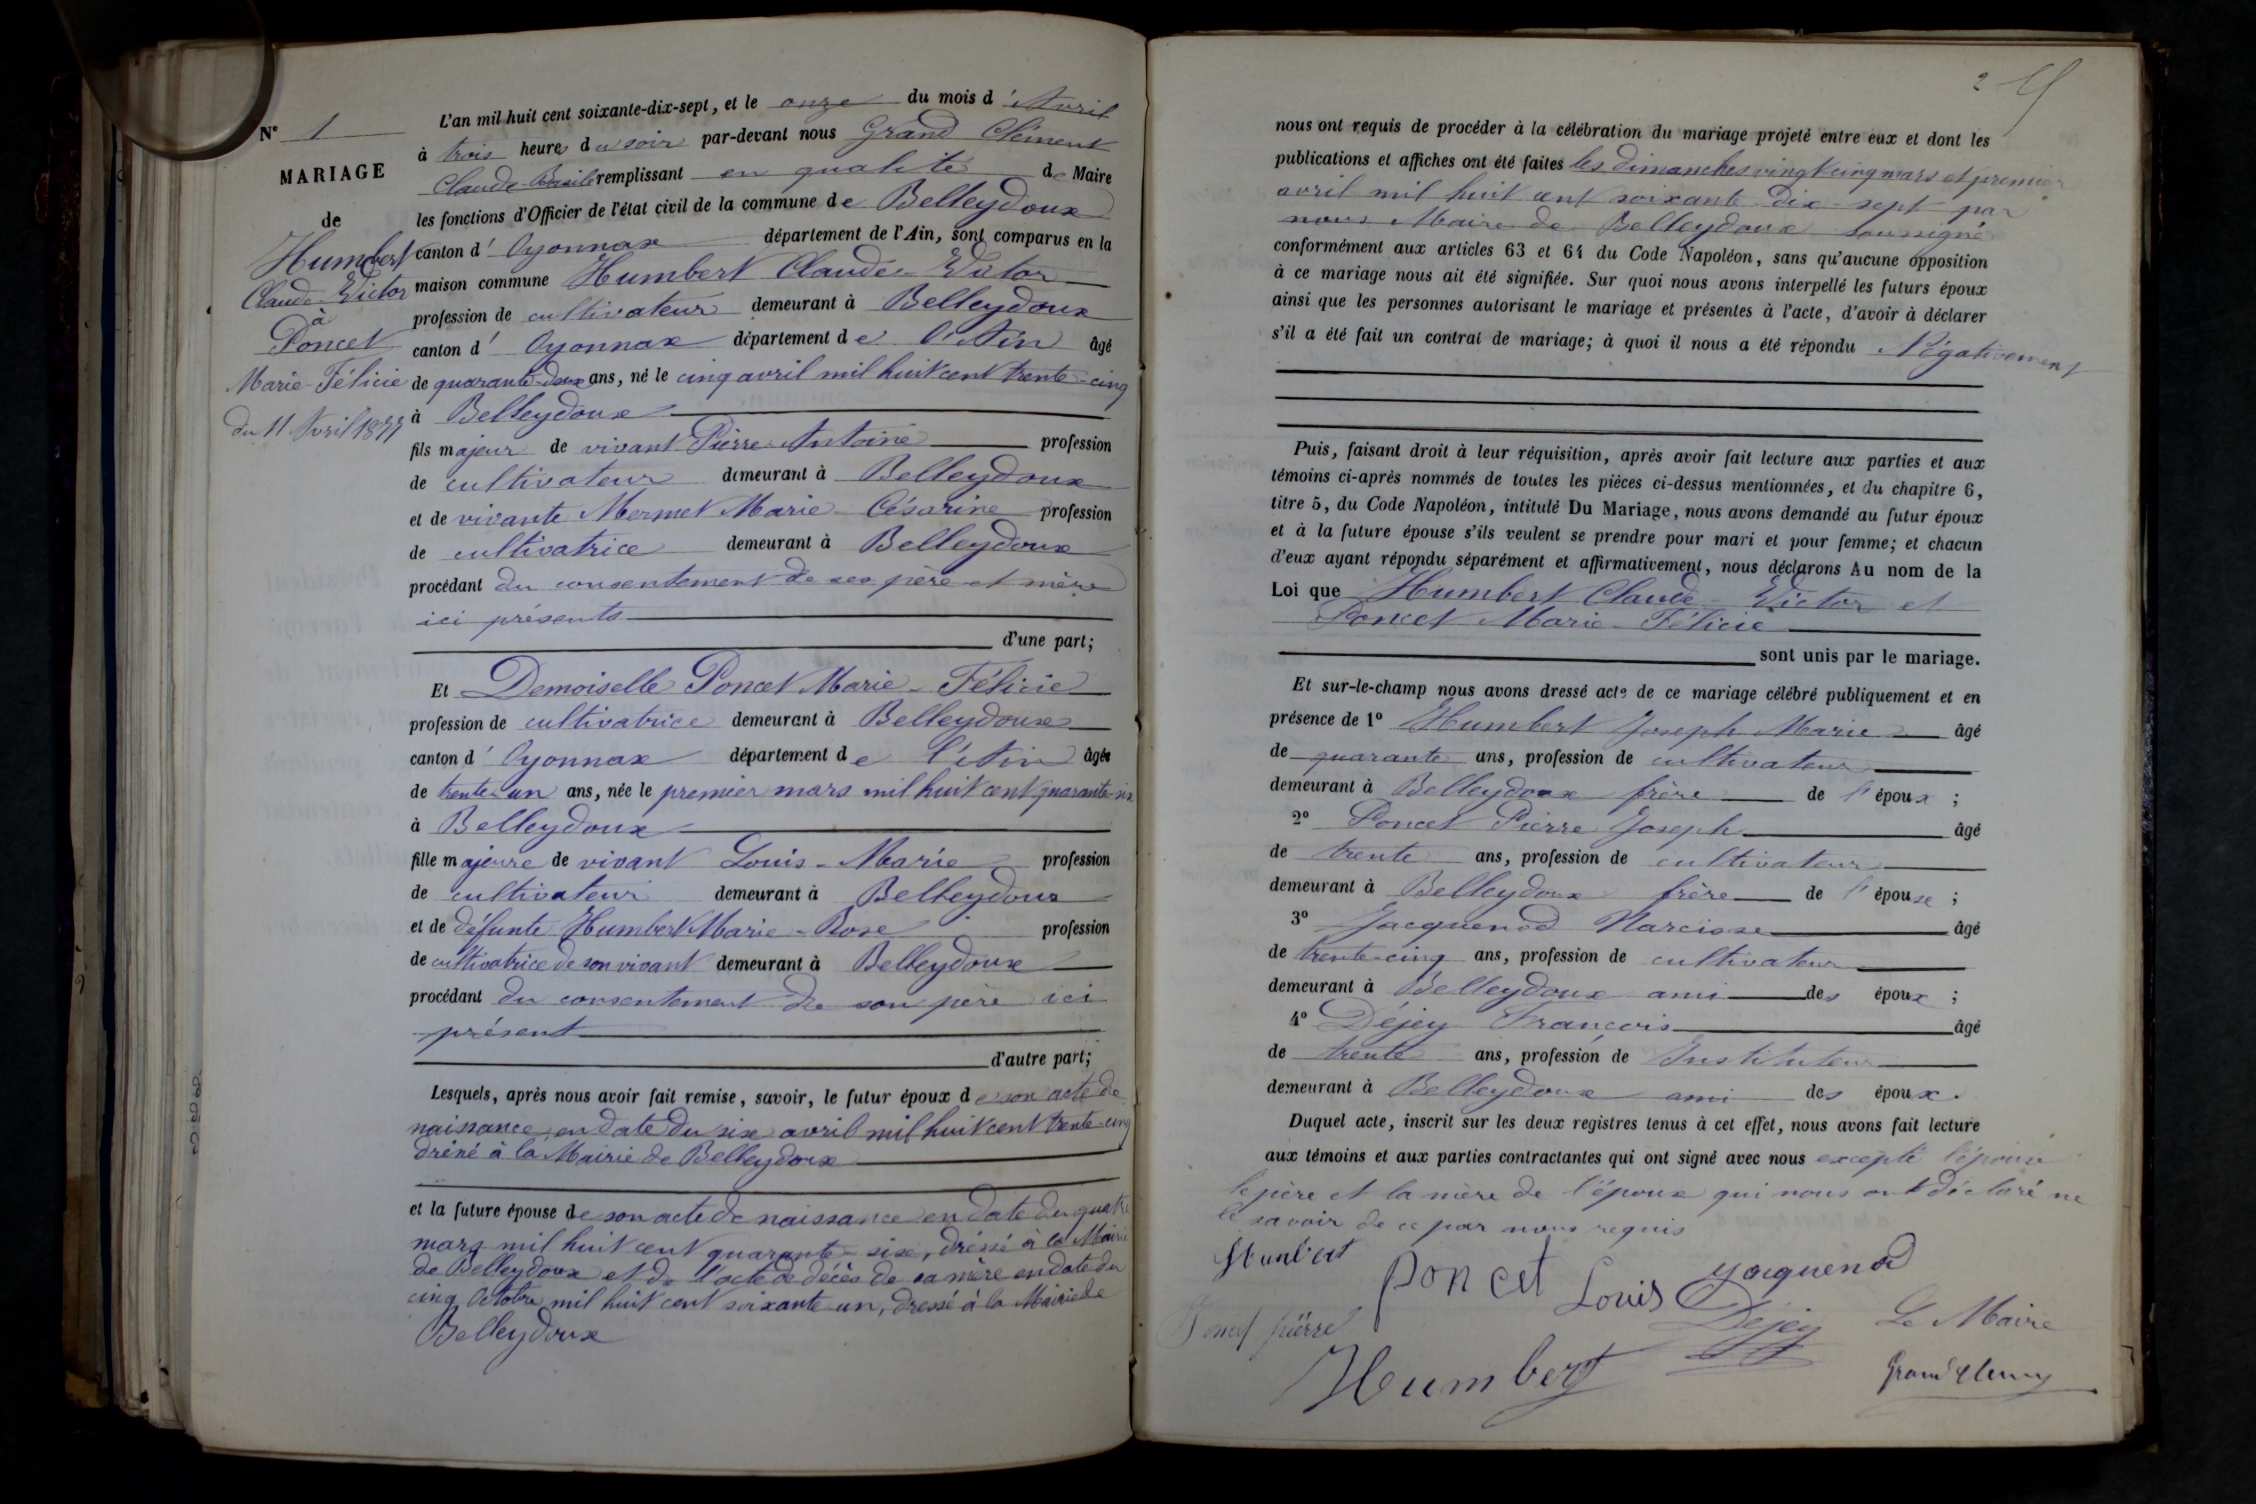 N° 1
MARIAGE
de
Humbert
Claude-Victor
à
Poncet
Marie-Félicie
du 11 Avril 1877
L'an mil huit cent soixante-dix-sept, et le onze du mois d'Avril
à trois heures du soir par-devant nous Grand Clément
Claude-Basile remplissant en qualité de Maire
les fonctions d'Officier de l'état civil de la commune de Belleydoux
canton d'Oyonnax département de l'Ain, sont comparus en la
maison commune Humbert Claude-Victor
profession de cultivateur demeurant à Belleydoux
canton d'Oyonnax département de l'Ain âgé
de quarante-deux ans, né le cinq avril mil huit cent trente-cinq
à Belleydoux
fils majeur de vivant Pierre-Antoine profession
de cultivateur demeurant à Belleydoux
et de vivante Mermet Marie Césarine profession
de cultivatrice demeurant à Belleydoux
procédant du consentement de ses père et mère
ici présents
d'une part;
Et Demoiselle Poncet Marie-Félicie
profession de cultivatrice demeurant à Belleydoux
canton d'Oyonnax département de l'Ain âgée
de trente-un ans, née le premier mars mil huit cent quarante-six
à Belleydoux
fille majeure de vivant Louis-Marie profession
de cultivateur demeurant à Belleydoux
et de défunte Humbert Marie-Rose profession
de cultivatrice de son vivant demeurant à Belleydoux
procédant du consentement de son père ici
présent
d'autre part;
Lesquels, après nous avoir fait remise, savoir, le futur époux de son acte de
naissance en date du six avril mil huit cent trente-cinq
dréssé à la Mairie de Belleydoux
et la future épouse de son acte de naissance en date du quatre
mars mil huit cent quarante-six, dréssé à la Mairie
de Belleydoux et de l'acte de décès de sa mère en date du
cinq Octobre mil huit cent soixante-un, dressé à la Mairie de
Belleydoux
nous ont requis de procéder à la célébration du mariage projeté entre eux et dont les
publications et affiches ont été faites les dimanches vingt cinq mars et premier
avril mil huit cent soixante-dix-sept par
nous Maire de Belleydoux soussigné
conformément aux articles 63 et 64 du Code Napoléon, sans qu'aucune opposition
à ce mariage nous ait été signifiée. Sur quoi nous avons interpellé les futurs époux
ainsi que les personnes autorisant le mariage et présentes à l'acte, d'avoir à déclarer
s'il a été fait un contrat de mariage; à quoi il nous a été répondu Négativement
Puis, faisant droit à leur réquisition, après avoir fait lecture aux parties et aux
témoins ci-après nommés de toutes les pièces ci-dessus mentionnées, et du chapitre 6,
titre 5, du Code Napoléon, intitulé Du Mariage, nous avons demandé au futur époux
et à la future épouse s'ils veulent se prendre pour mari et pour femme; et chacun
d'eux ayant répondu séparément et affirmativement, nous déclarons Au nom de la
Loi que Humbert Claude-Victor et
Poncet Marie-Félicie
sont unis par le mariage.
Et sur-le-champ nous avons dressé acte de ce mariage célébré publiquement et en
présence de 1° Humbert Joseph Marie âgé
de quarante ans, profession de cultivateur
demeurant à Belleydoux frère de l'époux;
2° Poncet Pierre Joseph âgé
de trente ans, profession de cultivateur
demeurant à Belleydoux frère de l'épouse;
3° Jacquenod Narcisse âgé
de trente-cinq ans, profession de cultivateur
demeurant à Belleydoux ami des époux;
4° Déjey François âgé
de trente ans, profession de Instituteur
demeurant à Belleydoux ami des époux.
Duquel acte, inscrit sur les deux registres tenus à cet effet, nous avons fait lecture
aux témoins et aux parties contractantes qui ont signé avec nous excepté l'épouse
le père et la mère de l'époux qui nous ont déclaré ne
le savoir de ce par nous requis
Humbert
poncet Louis
yacquenod
Poncet piérre
Déjey
Le Maire
Humbert
Grand Clément